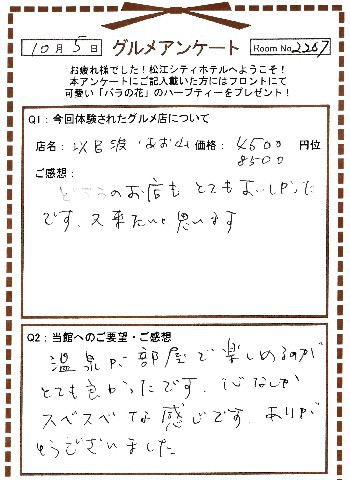 10月5日 グルメアンケート Room No 2207
お疲れ様でした！松江シティホテルへようこそ！
本アンケートにご記入戴いた方にはフロントにて
可愛い「バラの花」のハーブティーをプレゼント！
Q1：今回体験されたグルメ店について
店名： 価格： 4500 円位
8500
ご感想：
どちらのお店もとてもおいしかった
です、又来たいと思います
Q2：当館へのご要望・ご感想
温泉が部屋で楽しめるのが
とても良かったです、心なしか
スベスベな感じです、ありが
とうございました